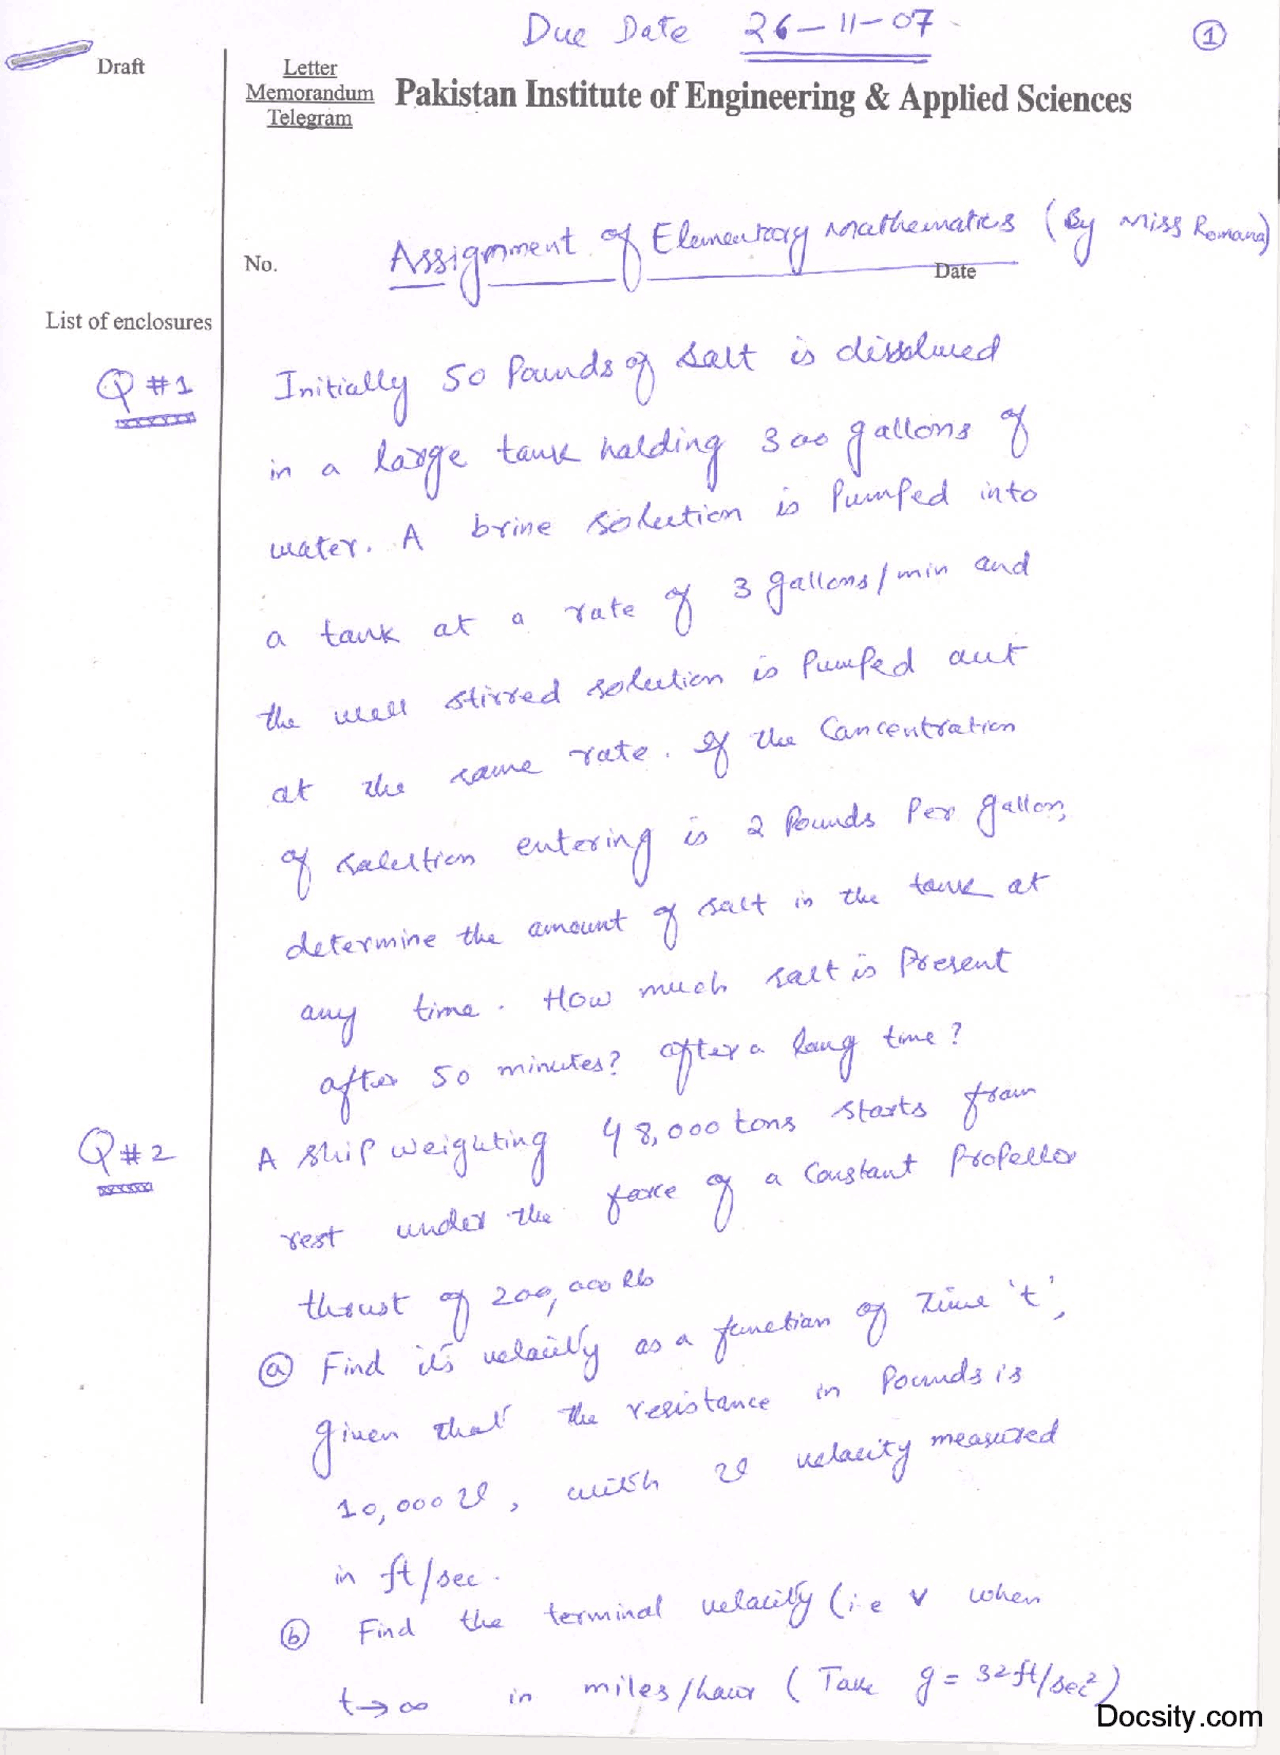 Due Date 26-11-07
1
Draft
Letter
Memorandum
Telegram
Pakistan Institute of Engineering & Applied Sciences
Assignment of Elementary Mathematics (By Miss Romana)
No.
Date
List of enclosures
Q #1
Initially 50 Pounds of salt is dissolved
in a large tank holding 300 gallons of
water. A brine solution is Pumped into
a tank at a rate of 3 gallons/min and
the well stirred solution is Pumped out
at the same rate. If the Concentration
of solution entering is 2 Pounds Per gallon,
determine the amount of salt in the tank at
any time. How much salt is Present
after 50 minutes? after a long time?
Q #2
A ship weighting 48,000 tons starts from
rest under the force of a Constant Propellor
thrust of 200,000 lb
a Find it's velacity as a function of Time 't',
given that the resistance in Pounds is
10,000 v, with v velacity measured
in ft/sec.
b Find the terminal velacity (i.e v when
t→∞ in miles/hour (Take g = 32 ft/sec²)
Docsity.com